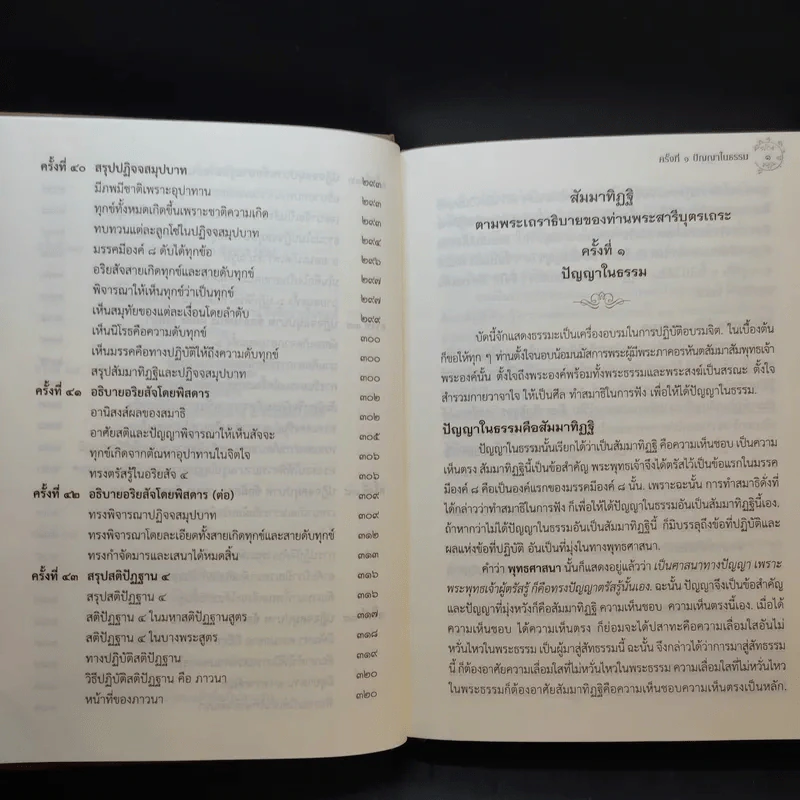 ครั้งที่ ๔๐ สรุปปฏิจจสมุปบาท ๒๙๓
มีภพมีชาติเพราะอุปาทาน ๒๙๓
ทุกข์ทั้งหมดเกิดขึ้นเพราะชาติความเกิด ๒๙๓
ทบทวนแต่ละลูกโซ่ในปฏิจจสมุปบาท ๒๙๔
มรรคมีองค์ ๘ ดับได้ทุกข้อ ๒๙๖
อริยสัจสายเกิดทุกข์และสายดับทุกข์ ๒๙๗
พิจารณาให้เห็นทุกข์ว่าเป็นทุกข์ ๒๙๗
เห็นสมุทัยของแต่ละเงื่อนโดยลำดับ ๒๙๙
เห็นนิโรธคือความดับทุกข์ ๓๐๐
เห็นมรรคคือทางปฏิบัติให้ถึงความดับทุกข์ ๓๐๐
สรุปสัมมาทิฏฐิและปฏิจจสมุปบาท ๓๐๐
ครั้งที่ ๔๑ อธิบายอริยสัจโดยพิสดาร ๓๐๒
อานิสงส์ผลของสมาธิ ๓๐๒
อาศัยสติและปัญญาพิจารณาให้เห็นสัจจะ ๓๐๕
ทุกข์เกิดจากตัณหาอุปาทานในจิตใจ ๓๐๖
ทรงตรัสรู้ในอริยสัจ ๔ ๓๐๖
ครั้งที่ ๔๒ อธิบายอริยสัจโดยพิสดาร (ต่อ) ๓๐๙
ทรงพิจารณาปฏิจจสมุปบาท ๓๐๙
ทรงพิจารณาโดยละเอียดทั้งสายเกิดทุกข์และสายดับทุกข์ ๓๑๒
ทรงกำจัดมารและเสนาได้หมดสิ้น ๓๑๓
ครั้งที่ ๔๓ สรุปสติปัฏฐาน ๔ ๓๑๖
สรุปสติปัฏฐาน ๔ ๓๑๖
สติปัฏฐาน ๔ ในมหาสติปัฏฐานสูตร ๓๑๗
สติปัฏฐาน ๔ ในบางพระสูตร ๓๑๘
ทางปฏิบัติสติปัฏฐาน ๓๑๙
วิธีปฏิบัติสติปัฏฐาน คือ ภาวนา ๓๒๐
หน้าที่ของภาวนา ๓๒๐
ครั้งที่ ๑ ปัญญาในธรรม ๑
สัมมาทิฏฐิ
ตามพระเถราธิบายของท่านพระสารีบุตรเถระ
ครั้งที่ ๑
ปัญญาในธรรม
บัดนี้จักแสดงธรรมะเป็นเครื่องอบรมในการปฏิบัติอบรมจิต. ในเบื้องต้น
ก็ขอให้ทุก ๆ ท่านตั้งใจนอบน้อมนมัสการพระผู้มีพระภาคอรหันตสัมมาสัมพุทธเจ้า
พระองค์นั้น ตั้งใจถึงพระองค์พร้อมทั้งพระธรรมและพระสงฆ์เป็นสรณะ ตั้งใจ
สำรวมกายวาจาใจ ให้เป็นศีล ทำสมาธิในการฟัง เพื่อให้ได้ปัญญาในธรรม.
ปัญญาในธรรมคือสัมมาทิฏฐิ
ปัญญาในธรรมนั้นเรียกได้ว่าเป็นสัมมาทิฏฐิ คือความเห็นชอบ เป็นความ
เห็นตรง สัมมาทิฏฐินี้เป็นข้อสำคัญ พระพุทธเจ้าจึงได้ตรัสไว้เป็นข้อแรกในมรรค
มีองค์ ๘ คือเป็นองค์แรกของมรรคมีองค์ ๘ นั้น. เพราะฉะนั้น การทำสมาธิดั่งที่
ได้กล่าวว่าทำสมาธิในการฟัง ก็เพื่อให้ได้ปัญญาในธรรมอันเป็นสัมมาทิฏฐินี้เอง.
ถ้าหากว่าไม่ได้ปัญญาในธรรมอันเป็นสัมมาทิฏฐินี้ ก็มิบรรลุถึงข้อที่ปฏิบัติและ
ผลแห่งข้อที่ปฏิบัติ อันเป็นที่มุ่งในทางพุทธศาสนา.
คำว่า พุทธศาสนา นั้นก็แสดงอยู่แล้วว่า เป็นศาสนาทางปัญญา เพราะ
พระพุทธเจ้าผู้ตรัสรู้ ก็คือทรงปัญญาตรัสรู้นั้นเอง. ฉะนั้น ปัญญาจึงเป็นข้อสำคัญ
และปัญญาที่มุ่งหวังก็คือสัมมาทิฏฐิ ความเห็นชอบ ความเห็นตรงนี้เอง. เมื่อได้
ความเห็นชอบ ได้ความเห็นตรง ก็ย่อมจะได้ปสาทะคือความเลื่อมใสอันไม่
หวั่นไหวในพระธรรม เป็นผู้มาสู่สัทธรรมนี้ ฉะนั้น จึงกล่าวได้ว่าการมาสู่สัทธรรม
นี้ ก็ต้องอาศัยความเลื่อมใสที่ไม่หวั่นไหวในพระธรรม ความเลื่อมใสที่ไม่หวั่นไหว
ในพระธรรมก็ต้องอาศัยสัมมาทิฏฐิคือความเห็นชอบความเห็นตรงเป็นหลัก.